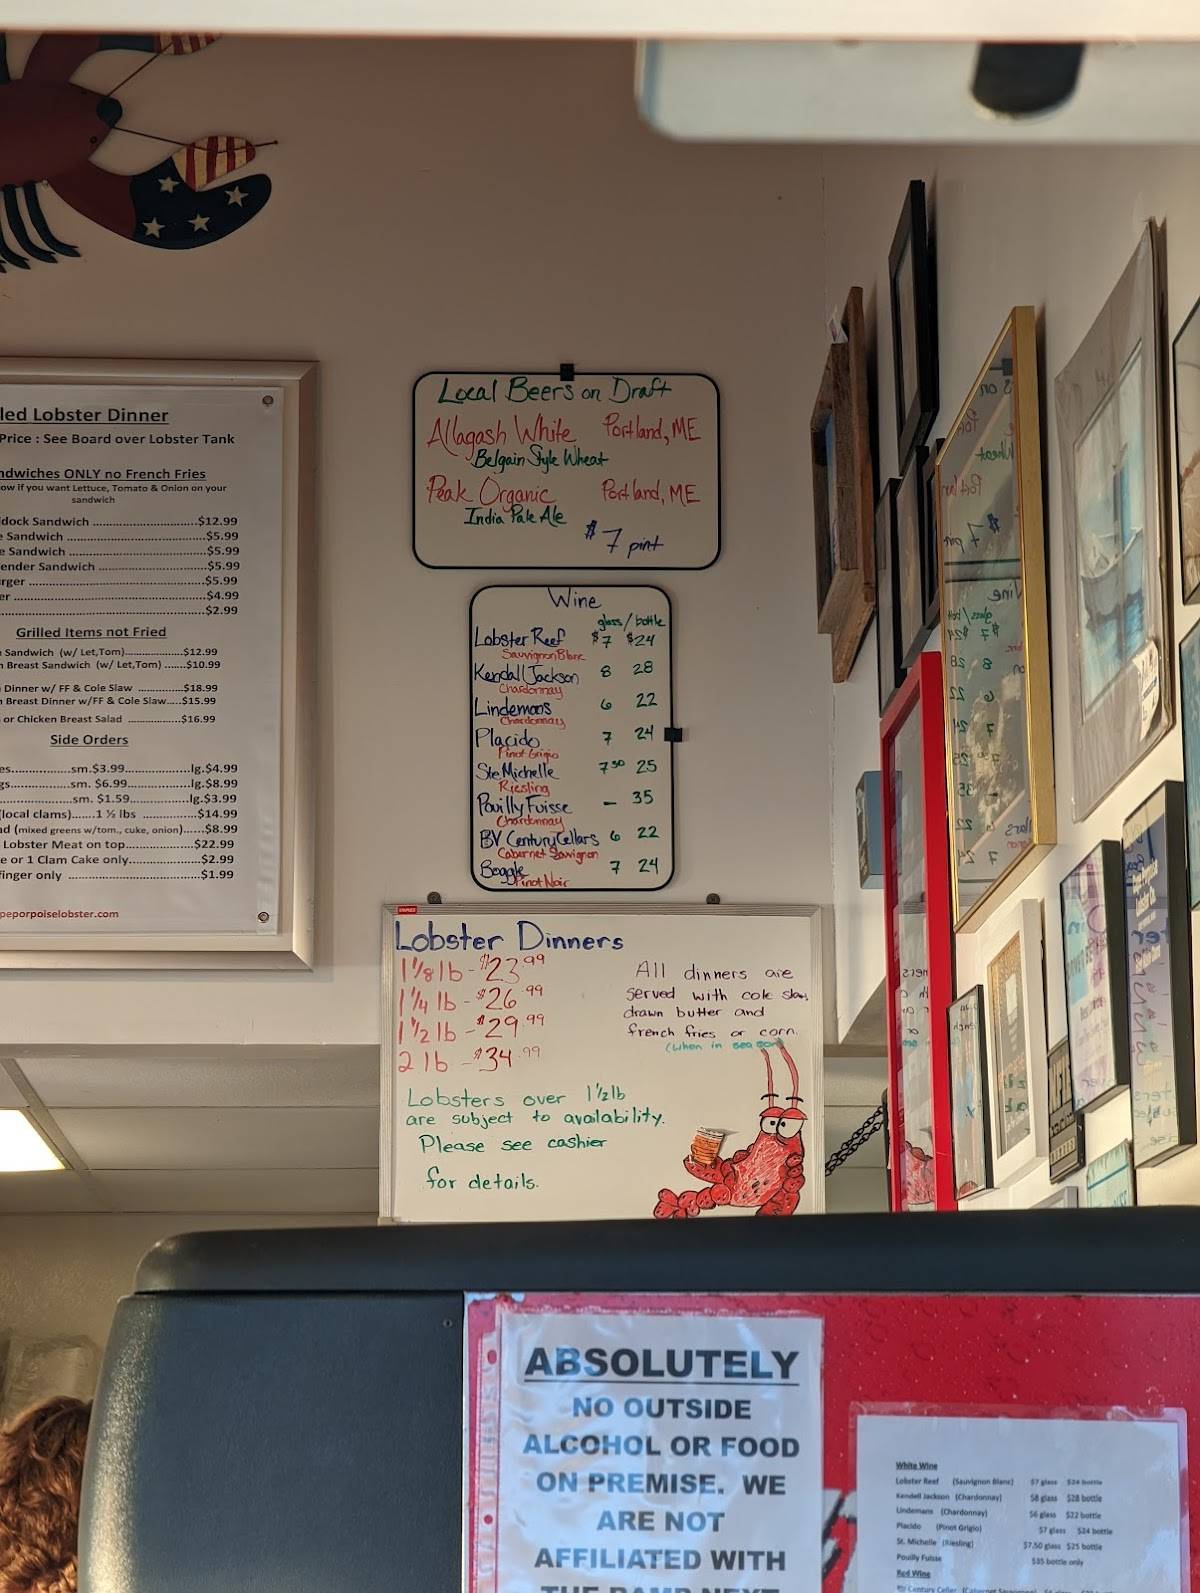 led Lobster Dinner
Price : See Board over Lobster Tank
ndwiches ONLY no French Fries
ow if you want Lettuce, Tomato & Onion on your
sandwich
ddock Sandwich ...........................$12.99
e Sandwich ...................................$5.99
e Sandwich ...................................$5.99
ender Sandwich ............................$5.99
rger ..............................................$5.99
er .................................................$4.99
....................................................$2.99
Grilled Items not Fried
Sandwich (w/ Let,Tom)......................$12.99
n Breast Sandwich (w/ Let,Tom) ......$10.99
Dinner w/ FF & Cole Slaw ..............$18.99
n Breast Dinner w/FF & Cole Slaw....$15.99
or Chicken Breast Salad ..................$16.99
Side Orders
es...............sm.$3.99...................lg.$4.99
gs...............sm. $6.99..................lg.$8.99
..................sm. $1.59..................lg.$3.99
(local clams)......1 ½ lbs ................$14.99
ad (mixed greens w/tom., cuke, onion)......$8.99
Lobster Meat on top.......................$22.99
e or 1 Clam Cake only.....................$2.99
finger only ....................................$1.99
peporpoiselobster.com
Local Beers on Draft
Allagash White Portland, ME
Belgain Style Wheat
Peak Organic Portland, ME
India Pale Ale
$7 pint
Wine
glass / bottle
Lobster Reef $7 $24
Sauvignon Blanc
Kendall Jackson 8 28
Chardonnay
Lindemans 6 22
Chardonnay
Placido 7 24
Pinot Grigio
Ste Michelle 7⁵⁰ 25
Riesling
Pouilly Fuisse – 35
Chardonnay
BV Century Cellars 6 22
Cabernet Sauvignon
Boggle 7 24
Pinot Noir
STAPLES
Lobster Dinners
1 1/8 lb - $23.99
1 1/4 lb - $26.99
1 1/2 lb - $29.99
2 lb - $34.99
All dinners are
served with cole slaw,
drawn butter and
french fries or corn.
(when in season)
Lobsters over 1 1/2 lb
are subject to availability.
Please see cashier
for details.
ABSOLUTELY
NO OUTSIDE
ALCOHOL OR FOOD
ON PREMISE. WE
ARE NOT
AFFILIATED WITH
THE RAMP NEXT
White Wine
Lobster Reef (Sauvignon Blanc) $7 glass $24 bottle
Kendell Jackson (Chardonnay) $8 glass $28 bottle
Lindemans (Chardonnay) $6 glass $22 bottle
Placido (Pinot Grigio) $7 glass $24 bottle
St. Michelle (Riesling) $7.50 glass $25 bottle
Pouilly Fuisse $35 bottle only
Red Wine